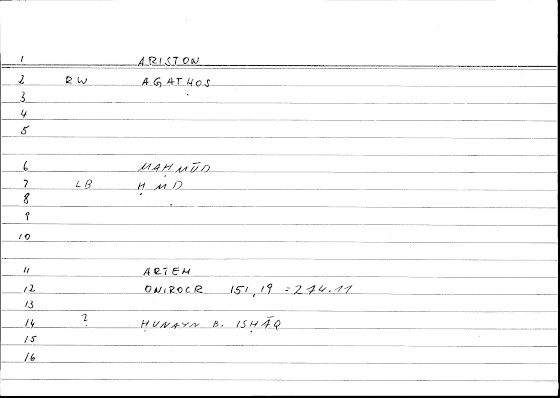 1 ARISTON
2 RW AGATHOS
3
4
5
6 MAḤMŪD
7 LB ḤMD
8
9
10
11 ARTEM
12 ONIROCR 151,19 = 274.11
13
14 ? ḤUNAYN B. ISḤĀQ
15
16